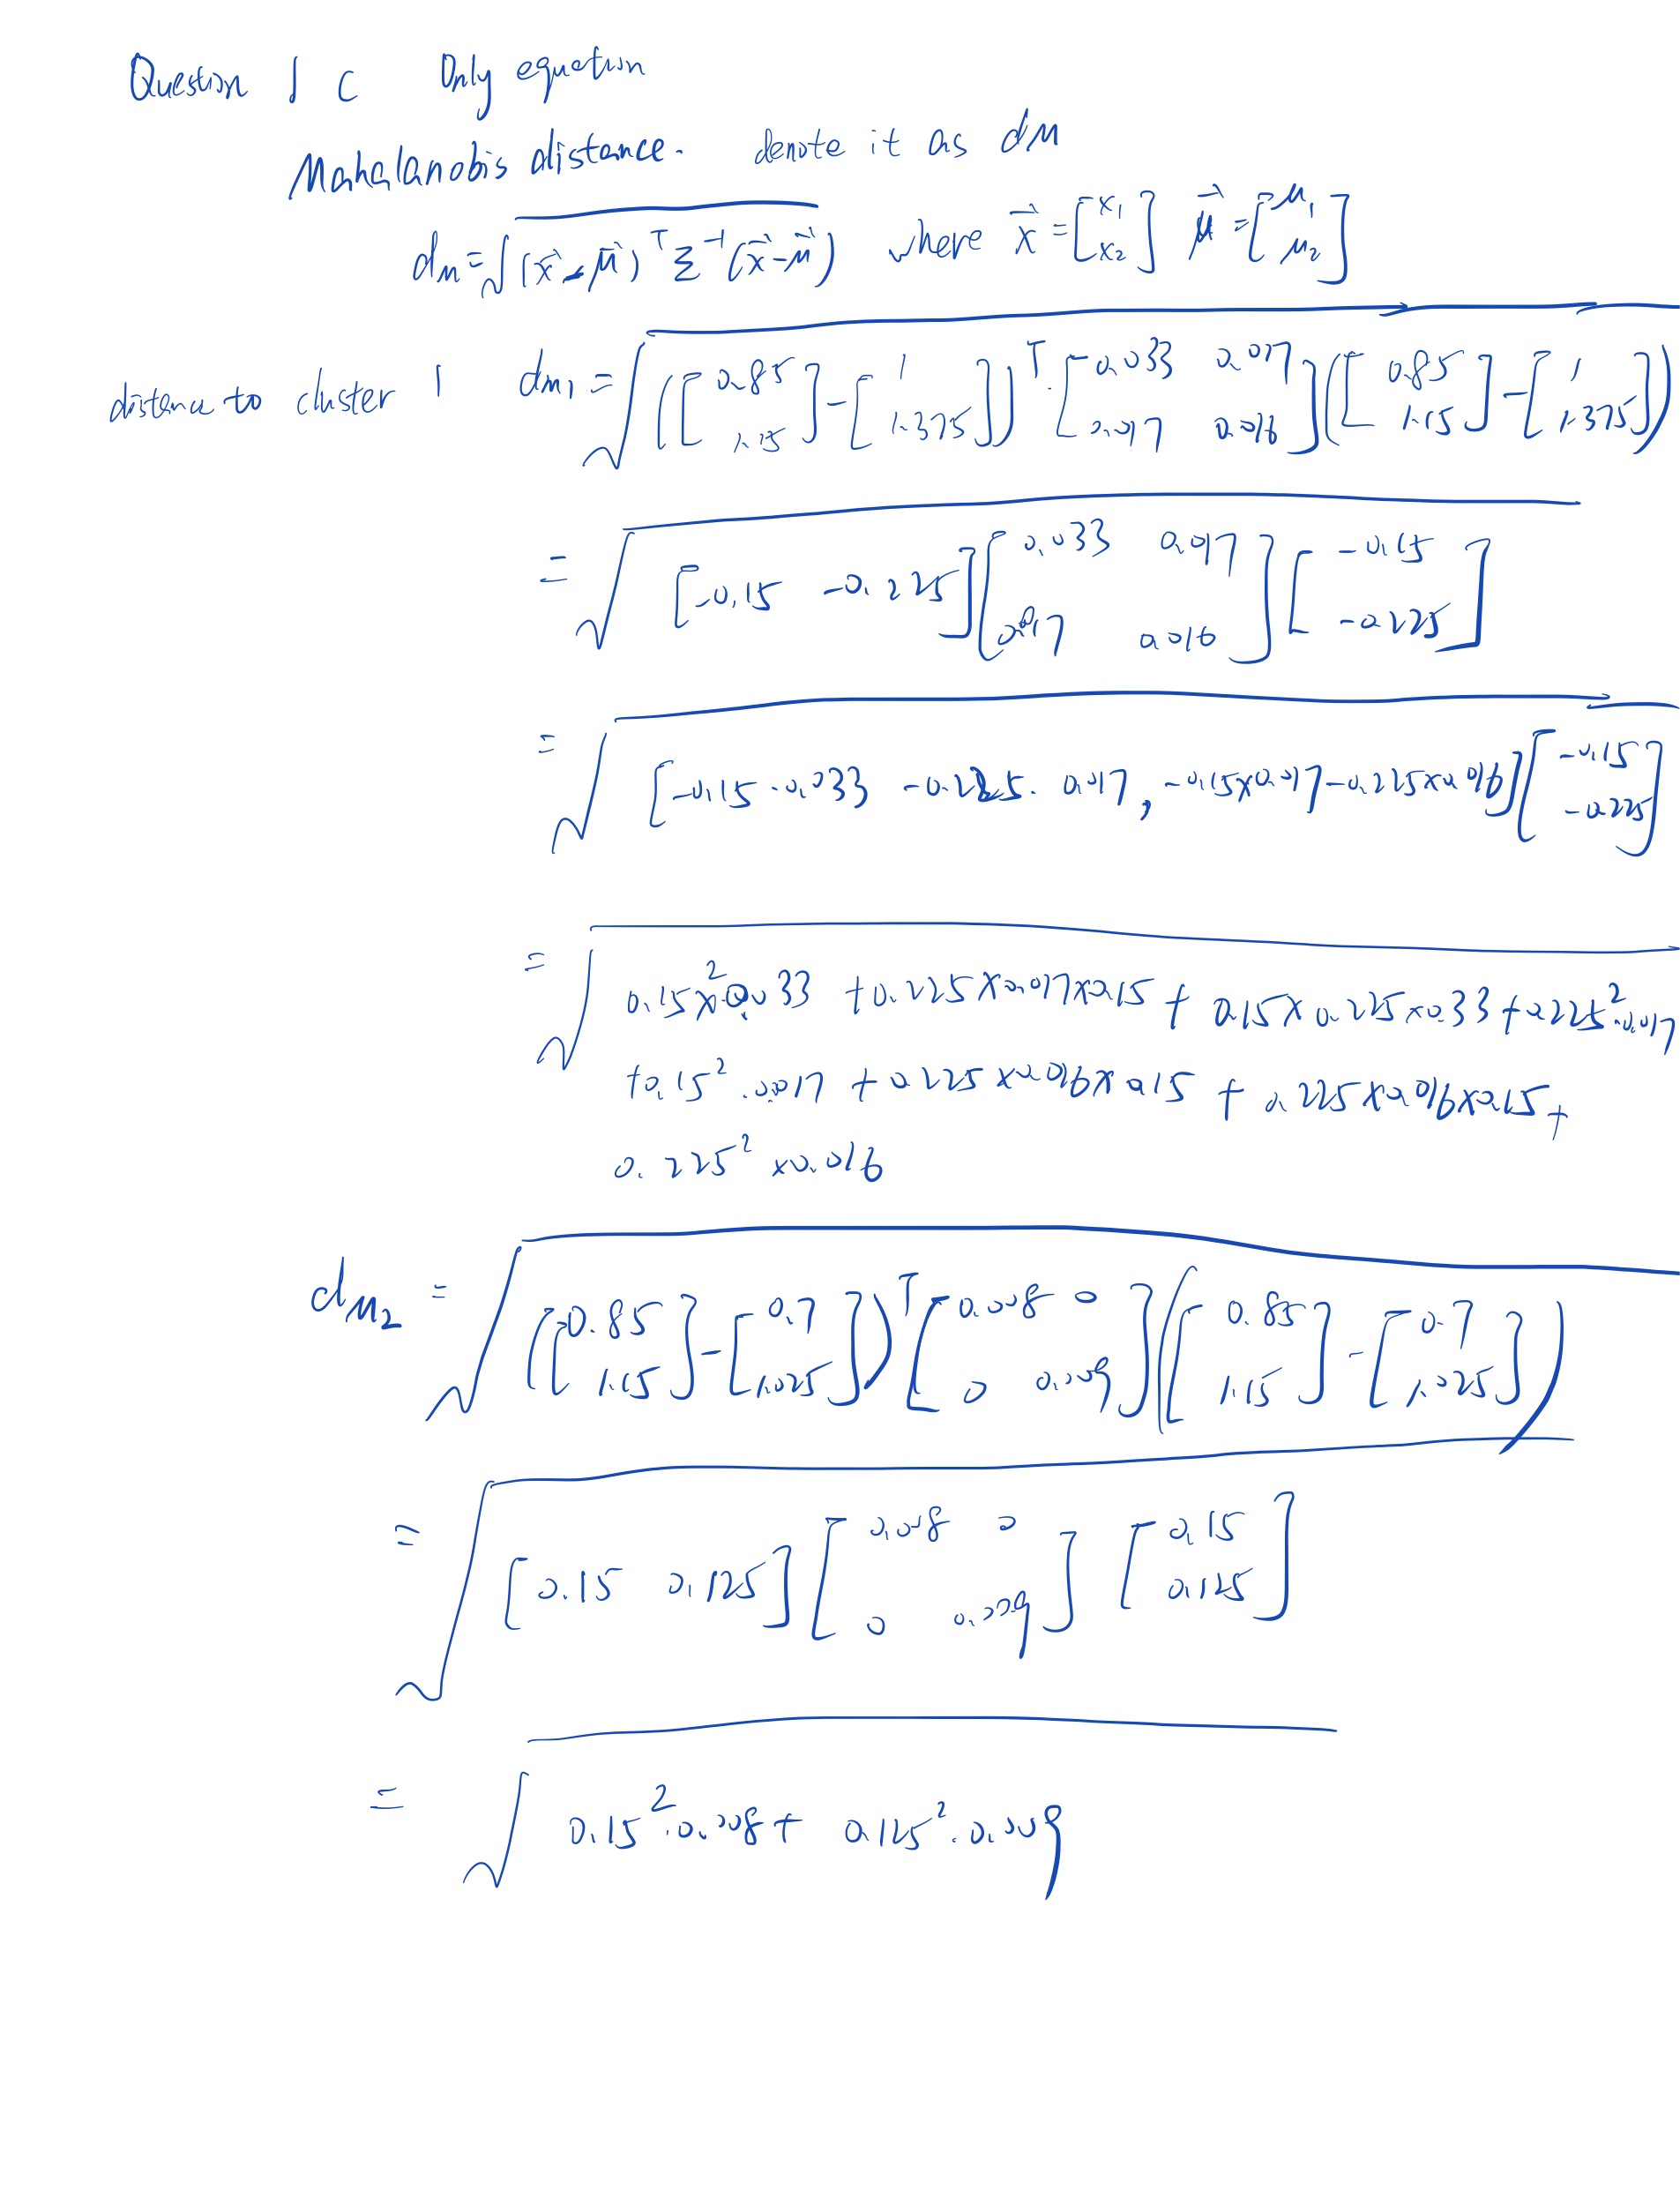 Question 1 c Only equation
Mahalanobis distance. denote it as dM
dM = √((x⃗ - μ⃗)ᵀ Σ⁻¹ (x⃗ - μ⃗)) where x⃗ = [x₁ x₂] μ⃗ = [μ₁ μ₂]
distance to cluster 1 dM₁ = √(([0.85 1.15] - [1 1.375])ᵀ · [0.033 0.017 0.017 0.016] ([0.85 1.15] - [1 1.375]))
= √([-0.15 -0.225] [0.033 0.017 0.017 0.016] [-0.15 -0.225])
= √([-0.15 · 0.033 -0.225 · 0.017, -0.15×0.017 -0.225×0.016] [-0.15 -0.225])
= √(0.15²×0.033 + 0.225×0.017×0.15 + 0.15×0.225×0.33 + 0.225²·0.017
+0.15² · 0.017 + 0.225×0.016×0.15 + 0.225×0.016×0.15 +
0.225² ×0.016
dM₂ = √(([0.85 1.15] - [0.7 1.025])ᵀ [0.008 0 0 0.009] ([0.85 1.15] - [0.7 1.025]))
= √([0.15 0.125] [0.008 0 0 0.009] [0.15 0.125])
= √(0.15² · 0.008 + 0.125² · 0.009)